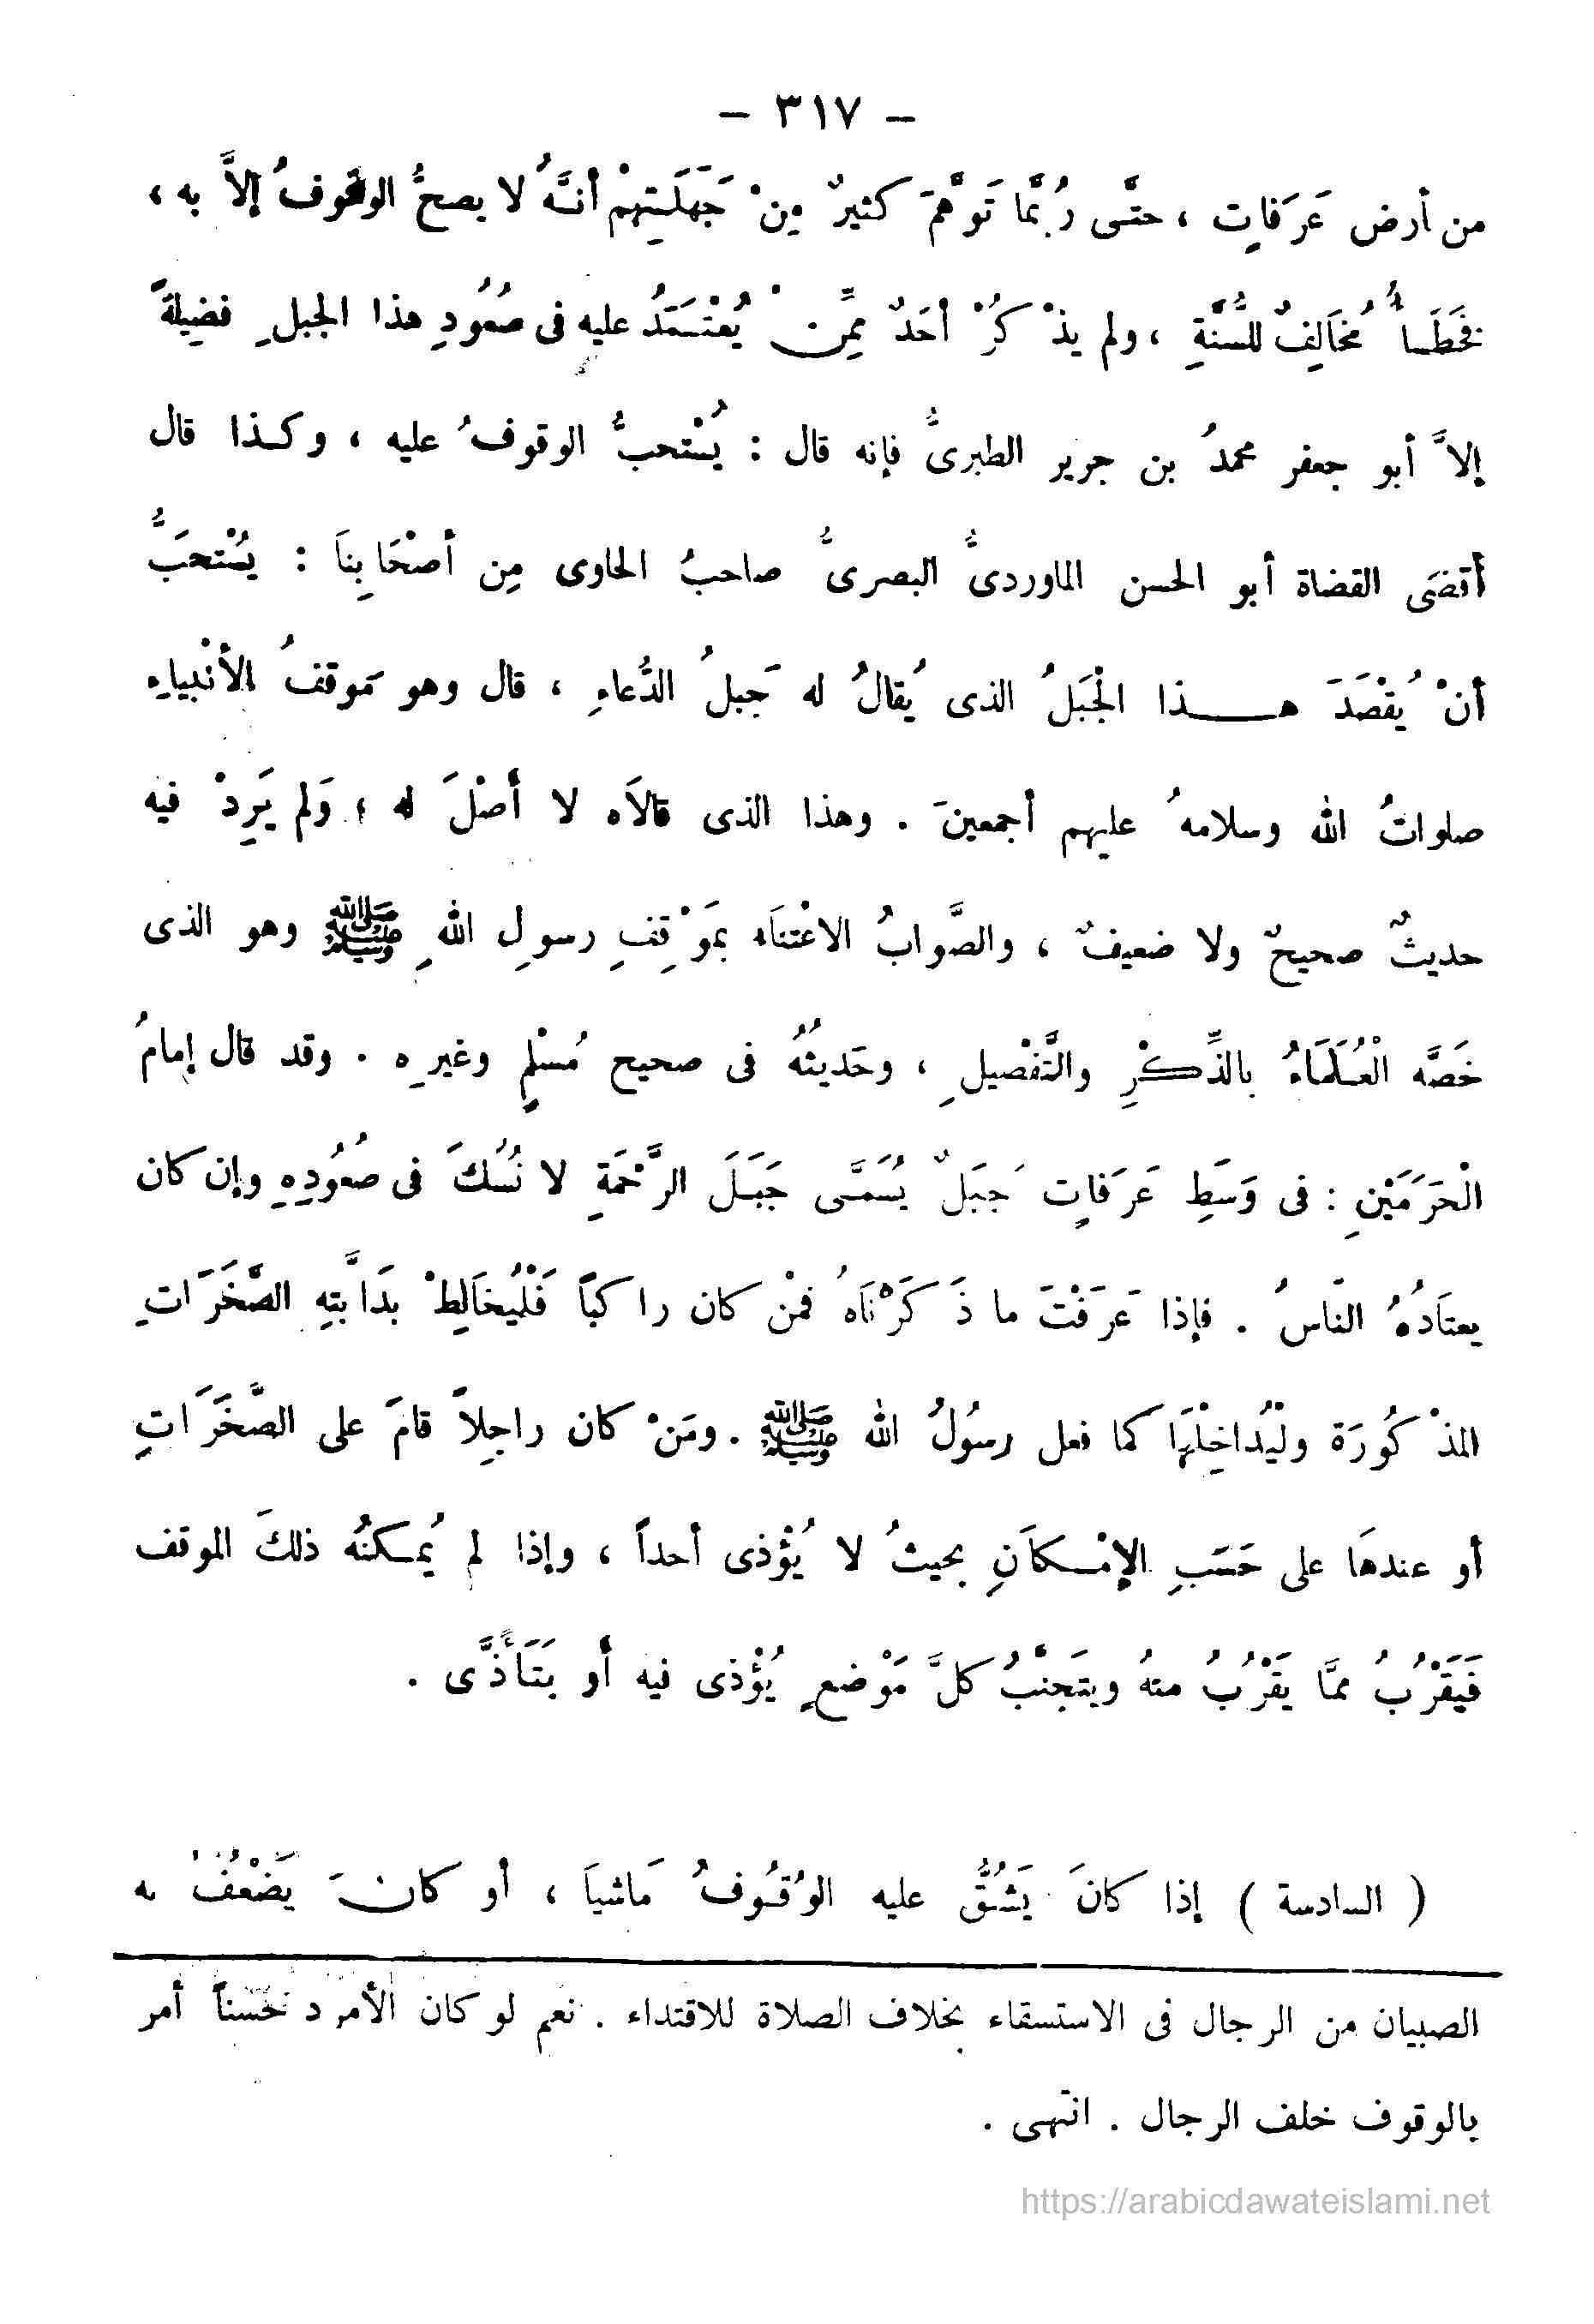 – ٣١٧ –
من أرض عَرَفاتٍ ، حتَّى رُبَّمَا تَوَهَّمَ كثيرٌ مِنْ جَهَلَتِهِمْ أنَّهُ لا يصحُّ الوقُوفُ إلاَّ به ،
فخَطَأٌ مُخَالِفٌ للسُّنَّةِ ، ولم يذْكُرْ أحَدٌ مِمِّنْ يُعْتَمَدُ عليه فى صُعُودِ هذا الجبلِ فضيلةً
إلاَّ أبو جعفر محمدُ بن جرير الطبرىُّ فإنه قال : يُسْتحبُّ الوقوفُ عليه ، وكذا قال
أقضَى القضاة أبو الحسن الماوردىُّ البصرىُّ صاحبُ الحاوى مِن أصْحَابِنَا : يُسْتحَبُّ
أنْ يُقْصَدَ هذا الْجَبَلُ الذى يُقالُ له جَبلُ الدُّعاءِ ، قال وهو مَوقفُ الأنْبياءِ
صلواتُ الله وسلامهُ عليهم أجمعينَ . وهذا الذى قالاَه لا أَصْلَ له ؛ وَلم يَرِدْ فيه
حديثٌ صحيحٌ ولا ضعيفٌ ، والصَّوابُ الاعْتناَء بمَوْقِفِ رسولِ اللهِ ﷺ وهو الذى
خَصَّه الْعُلَمَاءُ بالذِّكْرِ والتَّفْصيلِ ، وحَديثُهُ فى صحيح مُسْلمٍ وغيرِه . وقد قال إمامُ
الْحَرَمَيْنِ : فى وَسَطِ عَرَفاتٍ جَبَلٌ يُسَمَّى جَبَلَ الرَّحْمَةِ لا نُسُكَ فى صُعُودِهِ وإن كان
يعتَادُهُ النَّاسُ . فإذا عَرَفْتَ ما ذَكَرْنَاهُ فمْن كان راكبًا فَلْيُخَالِطْ بدَابَّتِهِ الصَّخَرَاتِ
المذْكُورَة ولْيُداخِلْهَا كما فعل رسُولُ الله ﷺ . ومَنْ كان راجِلاً قامَ على الصَّخَرَاتِ
أو عندهَا على حَسَبِ الإمْكاَنِ بحيثُ لا يُؤْذى أحداً ، وإذا لم يُمكنْهُ ذلكَ الموقف
فَيَقْرُبُ ممَّا يَقْرُبُ منهُ ويتَجنْبُ كلَّ مَوْضعٍ يُؤْذى فيه أو يَتَأَذَّى .
( السادسة ) إذا كانَ يَشُقُّ عليه الوُقُوفُ مَاشياَ ، أو كانَ يَضْعُفُ به
الصبيان من الرجال فى الاستسقاء بخلاف الصلاة للاقتداء . نعم لو كان الأمرد حَسناً أمر
بالوقوف خلف الرجال . انتهى .
https://arabicdawateislami.net